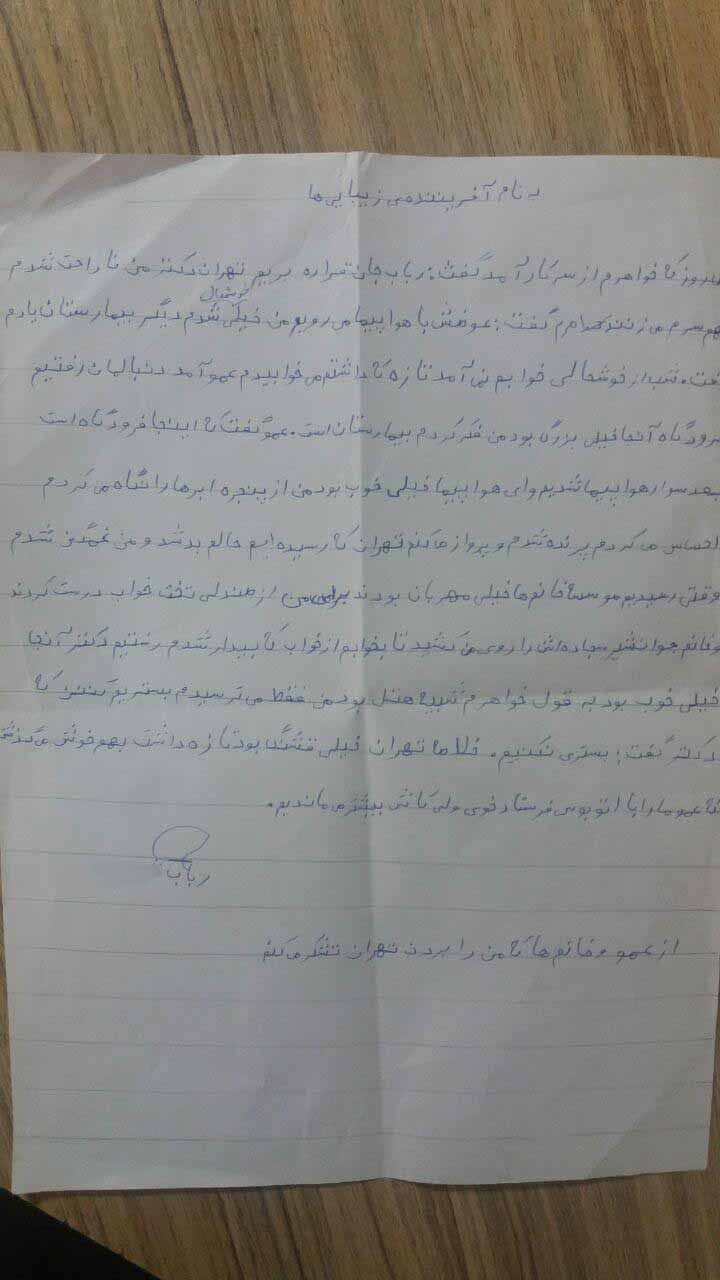 به نام آفریننده ی زیبایی ها
روز که خواهرم از سر کار آمد گفت: رباب جان قراره بریم تهران دکتر من ناراحت شدم
بهم سرم می زنند خواهرم گفت: عوضش با هواپیما می رویم من خیلی خوشحال شدم دیگر بیمارستان یادم
رفت. شب از خوشحالی خوابم نمی آمد تازه که داشتم می خوابیدم عمو آمد دنبالمان رفتیم
فرودگاه آنجا خیلی بزرگ بود من فکر کردم بیمارستان است. عمو گفت که اینجا فرودگاه است
بعد سوار هواپیما شدیم وای هواپیما خیلی خوب بود من از پنجره ابرها را نگاه می کردم
احساس می کردم پرنده شدم و پرواز می کنم تهران که رسیدیم حالم بد شد و من غمگین شدم
وقتی رسیدیم موسسه خانم ها خیلی مهربان بودند برای من از صندلی تخت خواب درست کردند
و خانم جوانشیر سجاده اش را روی من کشید تا بخوابم از خواب که بیدار شدم رفتیم دکتر آنجا
خیلی خوب بود به قول خواهرم شبیه هتل بود من فقط می ترسیدم بستریم کنن که
دکتر گفت: بستری نکنیم. خلاصه تهران خیلی قشنگ بود تازه داشت بهم خوش می گذشت
که عمو ما را با اتوبوس فرستاد خوی ولی کاش بیشتر می ماندیم.
رباب
از عمو و خانم ها که من را بردن تهران تشکر می کنم